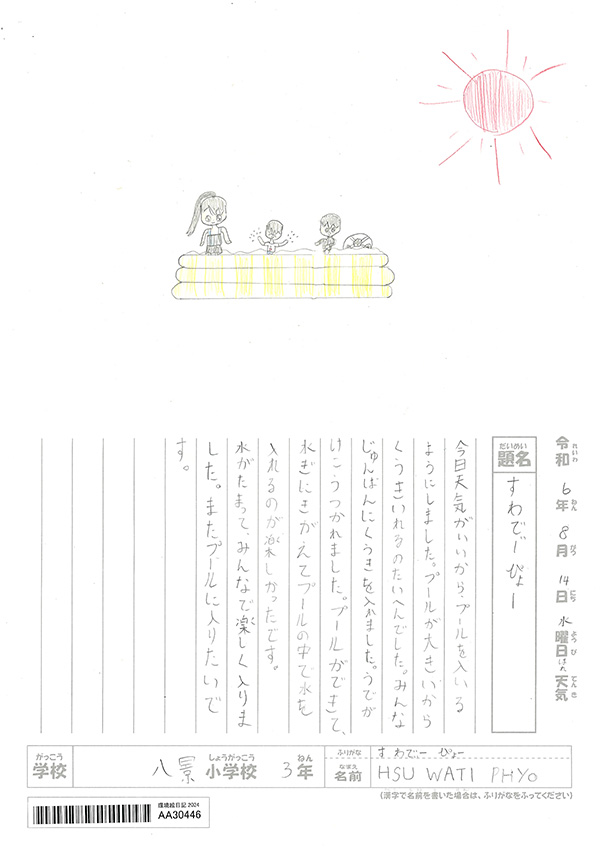 令和6年8月14日水曜日天気
れいわ ねん がつ にち ようび はれ てんき
だいめい
題名
すわでー ぴょー
今日天気がいいから、プールを入いる
ようにしました。プールが大きいから
くうきいれるのたいへんでした。みんな
じゅんばんにくうきを入れました。うでが
けこうつかれました。プールができて、
水ぎにきがえてプールの中で水を
入れるのが楽しかったです。
水がたまって、みんなで楽しく入りま
した。またプールに入りたいで
す。
がっこう しょうがっこう ねん ふりがな すわでー ぴょー
学校 八景 小学校 3年 なまえ 名前 HSU WATI PHYO
(漢字で名前を書いた場合は、ふりがなをふってください)
環境絵日記 2024
AA30446